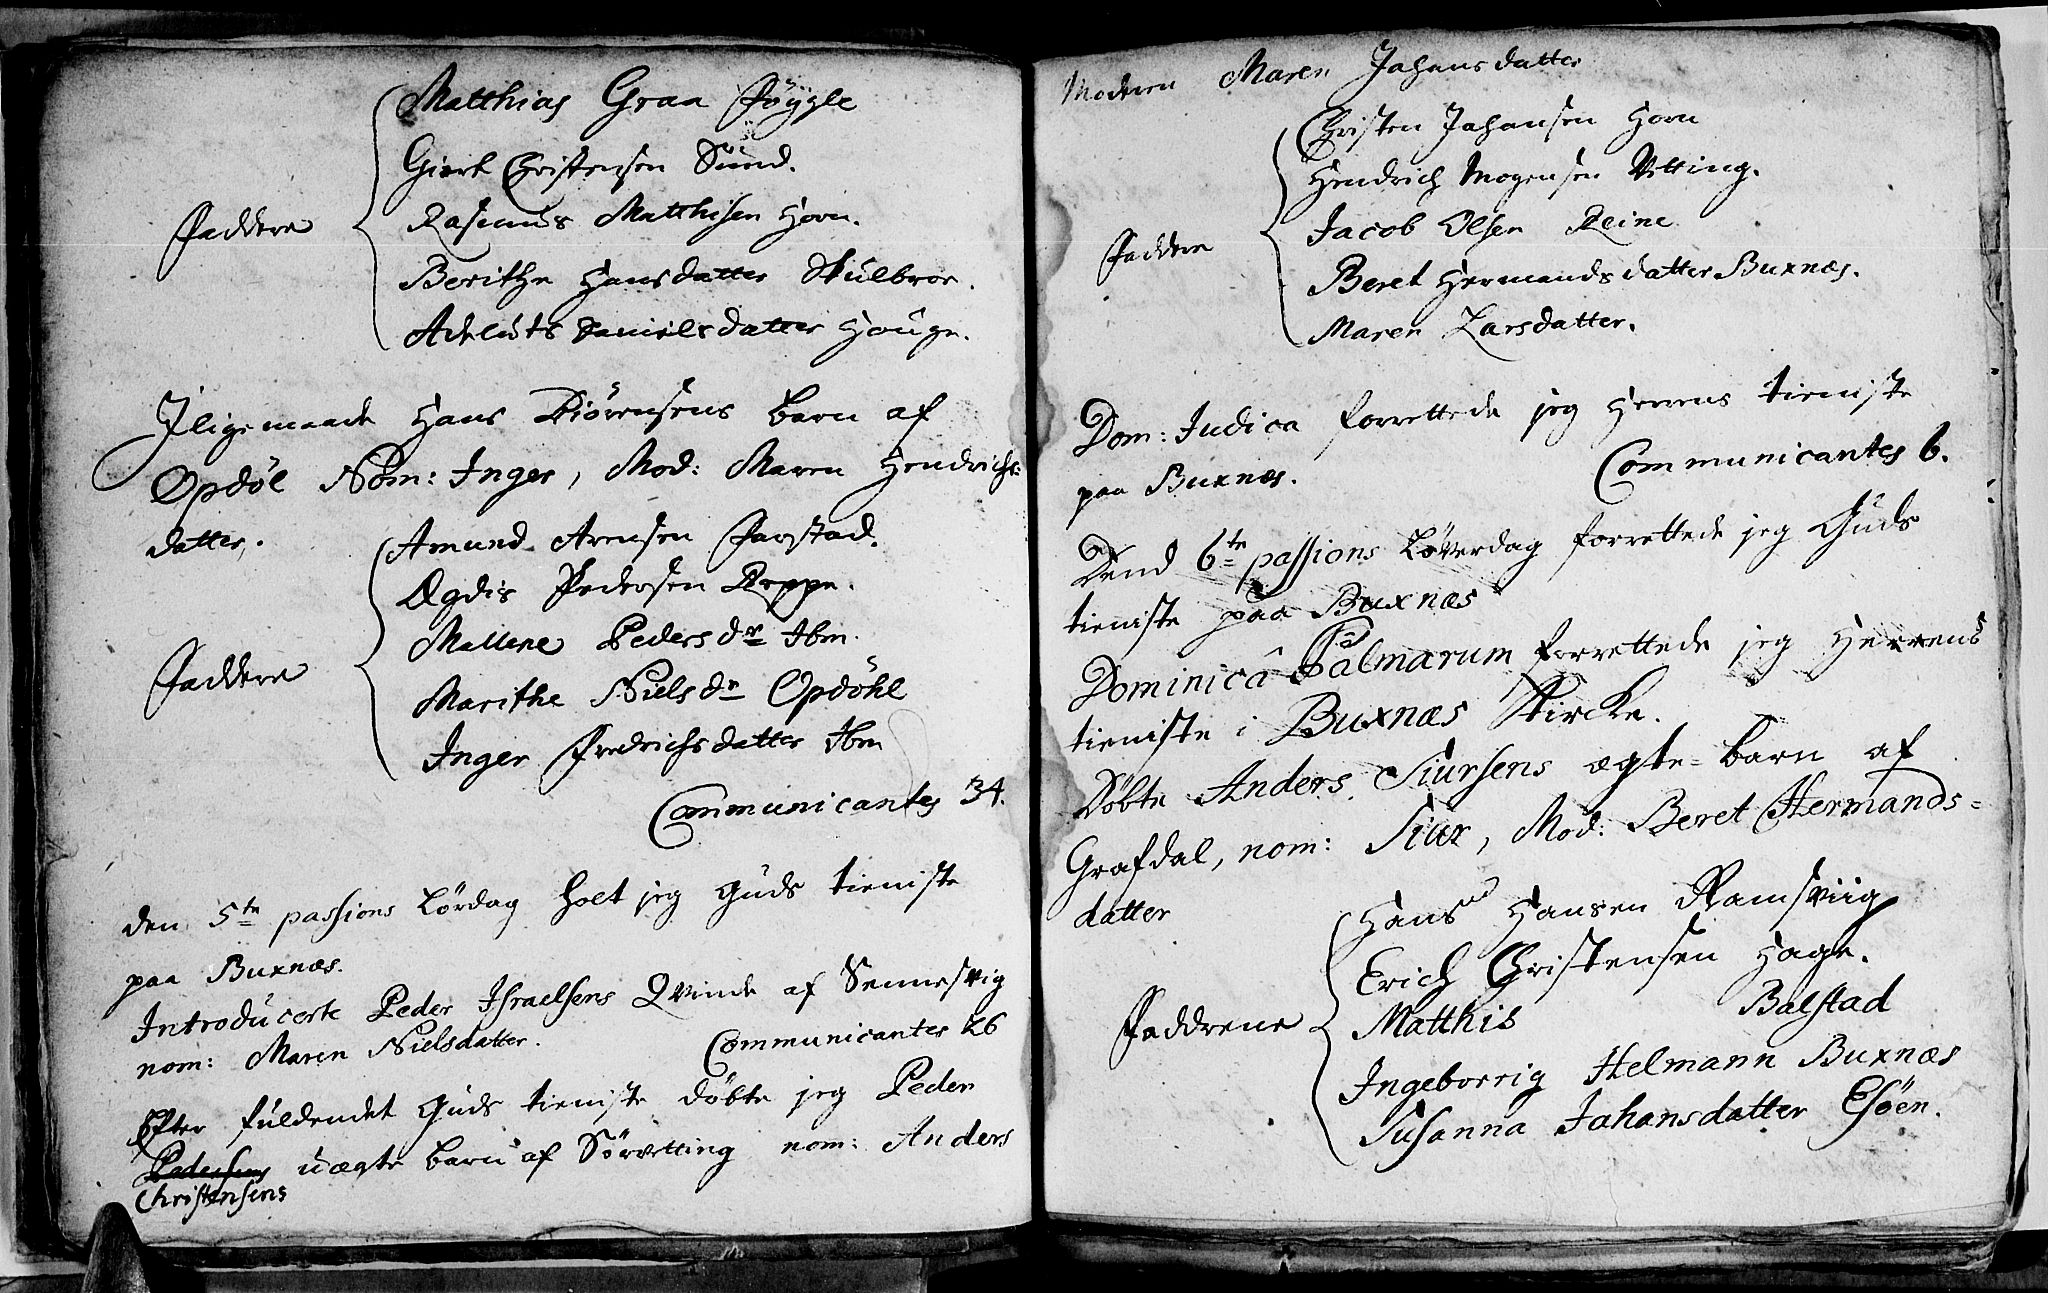 Matthias Graa Föygle
Giert Christensen Sund.
Rasmus Matthisen Horn.
Faddere
Berithe Hansdatter Skulbroe.
Adeluts Danielsdatter Houge.
Iligemaade Hans Biörensens barn af
Opdöl Nom: Inger, Mod: Maren Hendrichs:
datter,.
Amund Arensen Farstad.
Ægdis Pedersen Reppe.
Mallene Pedersdr Ibm.
Faddere
Marithe Nielsdr Opdöhl
Inger Fredrichsdatter Ibm
Communicantes 34.
den 5te passions Lördag holt jeg Guds tieniste
paa Buxnæs.
Introducerte Peder Israelsens Qvinde af Sennesvig
nom: Maren Nielsdatter. Communicantes 26
Efter fuldendet Guds tieniste döbte jeg Peder
Pedersens uægte barn af Sörvetting nom: Anders
Christensens
Moderen Maren Jahansdatter
Christen Jahansen Horn
Hendrich Mogensen Vetting.
Jacob Olsen Reine
Faddere
Beret Hermandsdatter Buxnæs.
Maren Larsdatter.
Dom: Judica forrettede jeg Herrens tieniste
paa Buxnæs. Communicantes 6.
Dend 6te passions Löverdag forrettede jeg Guds
tieniste paa Buxnæs
Dominicâ Palmarum forrettede jeg Herrens
tieniste i Buxnæs Kircke.
Döbte Anders Siursens ægte-barn af
Grafdal, nom: Siur, Mod: Beret Hermands-
datter
Hans Hansen Ramsviig
Erich Christensen Hage.
Faddrene
Matthis Balstad
Ingeborrig Helmann Buxnæs
Susanna Jahansdatter Esöen.